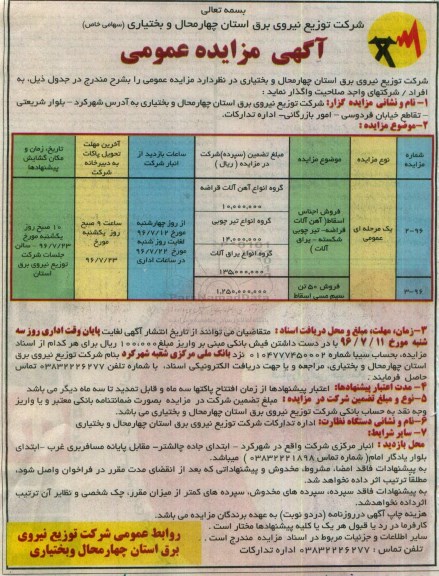 بسمه تعالی
شرکت توزیع نیروی برق استان چهارمحال و بختیاری (سهامی خاص)
آگهی مزایده عمومی
شرکت توزیع نیروی برق استان چهارمحال و بختیاری در نظردارد مزایده عمومی را بشرح مندرج در جدول ذیل، به
افراد / شرکتهای واجد صلاحیت واگذار نماید :
۱- نام و نشانی مزایده گزار: شرکت توزیع نیروی برق استان چهارمحال و بختیاری به آدرس شهرکرد - بلوار شریعتی
- تقاطع خیابان فردوسی - امور بازرگانی- اداره تدارکات.
۲-موضوع مزایده :
شماره مزایده | نوع مزایده | موضوع مزایده | مبلغ تضمین (سپرده)شرکت در مزایده ( ریال ) | ساعات بازدید از انبار شرکت | آخرین مهلت تحویل پاکات به دبیرخانه شرکت | تاریخ، زمان و مکان گشایش پیشنهادها
۲-۹۶ | یک مرحله ای عمومی | فروش اجناس اسقاط( آهن آلات قراضه- تیر چوبی شکسته - یراق آلات ) | گروه انواع آهن آلات قراضه
۱۰,۰۰۰,۰۰۰
گروه انواع تیر چوبی
۱۴,۰۰۰,۰۰۰
گروه انواع یراق آلات
۱۳۵,۰۰۰,۰۰۰
از روز چهارشنبه مورخ ۹۶/۷/۱۲ لغایت روز شنبه مورخ ۹۶/۷/۲۲ در ساعات اداری
ساعت ۹ صبح روز یکشنبه مورخ ۹۶/۷/۲۳
۱۰ صبح روز یکشنبه مورخ ۹۶/۷/۲۳ - سالن جلسات شرکت توزیع نیروی برق استان
۳-۹۶ | فروش ۵۰ تن سیم مسی اسقاط | ۱,۲۵۰,۰۰۰,۰۰۰
۳-زمان، مهلت، مبلغ و محل دریافت اسناد : متقاضیان می توانند از تاریخ انتشار آگهی لغایت پایان وقت اداری روز سه
شنبه مورخ ۹۶/۷/۱۱ با در دست داشتن فیش بانکی مبنی بر واریز مبلغ ۱۰۰,۰۰۰ ریال برای هر کدام از اسناد
مزایده، بحساب سیبا شماره ۰۱۰۴۷۷۷۴۵۰۰۰۲ نزد بانک ملی مرکزی شعبه شهرکرد بنام شرکت توزیع نیروی برق
استان چهارمحال و بختیاری، مراجعه و یا جهت دریافت الکترونیکی اسناد، با شماره تلفن ۰۳۸۳۲۲۲۶۲۷۷ تماس
حاصل فرمایند .
۴- مدت اعتبار پیشنهادها: اعتبار پیشنهادها از زمان افتتاح پاکتها سه ماه و قابل تمدید تا سه ماه دیگر می باشد
۵-نوع و مبلغ تضمین شرکت در مزایده : مبلغ تضمین شرکت در مزایده بصورت ضمانتنامه بانکی معتبر و یا واریز
وجه نقد به حساب بانکی شرکت توزیع نیروی برق استان چهارمحال و بختیاری می باشد.
۶-نام و نشانی دستگاه نظارت: اداره تدارکات شرکت توزیع نیروی برق استان چهارمحال و بختیاری
۷- سایر شرایط:
محل بازدید : انبار مرکزی شرکت واقع در شهرکرد - ابتدای جاده چالشتر- مقابل پایانه مسافربری غرب -ابتدای
بلوار یادگار امام( شماره تماس ۰۳۸۳۲۲۲۱۸۹۸ ) میباشد.
به پیشنهادات فاقد امضا، مشروط، مخدوش و پیشنهاداتی که بعد از انقضای مدت مقرر در فراخوان واصل شود،
مطلقا ترتیب اثر داده نخواهد شد.
به پیشنهادات فاقد سپرده، سپرده های مخدوش، سپرده های کمتر از میزان مقرر، چک شخصی و نظایر آن ترتیب
اثرداده نخواهدشد.
هزینه چاپ آگهی درروزنامه (دردو نوبت) به عهده برندگان مزایده می باشد.
کارفرما در رد یا قبول هر یک یا کلیه پیشنهادها مختار است .
سایر اطلاعات و جزئیات مربوط در اسناد مزایده مندرج است .
تلفن تماس : ۰۳۸۳۲۲۲۶۲۷۷ اداره تدارکات
روابط عمومی شرکت توزیع نیروی
برق استان چهارمحال وبختیاری